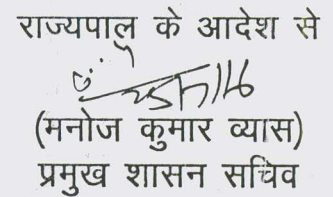 राज्यपाल के आदेश से
(मनोज कुमार व्यास)
प्रमुख शासन सचिव